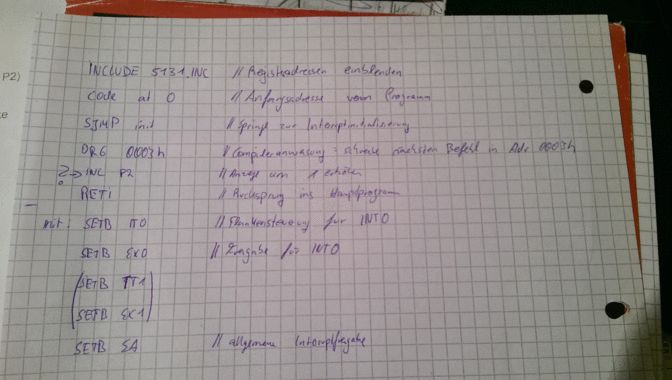 P2)
INCLUDE 5131.INC // Registeradressen einblenden
code at 0 // Anfangsadresse vom Programm
SJMP init // Springe zur Interruptinitialisierung
ORG 0003h // Compileranweisung: schreibe nächsten Befehl in Adr 0003h
? → INC P2 // Anzeige um 1 erhöhen
RETI // Rücksprung ins Hauptprogramm
init: SETB IT0 // Flankensteuerung für INT0
SETB EX0 // Freigabe für INT0
(SETB IT1
SETB EX1)
SETB EA // allgemeine Interruptfreigabe